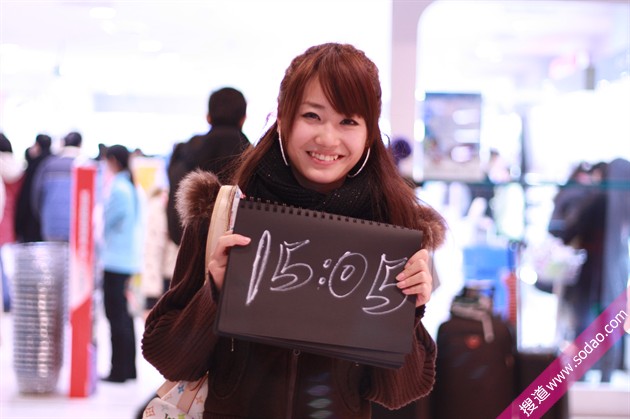 15:05
搜道www.sodao.com